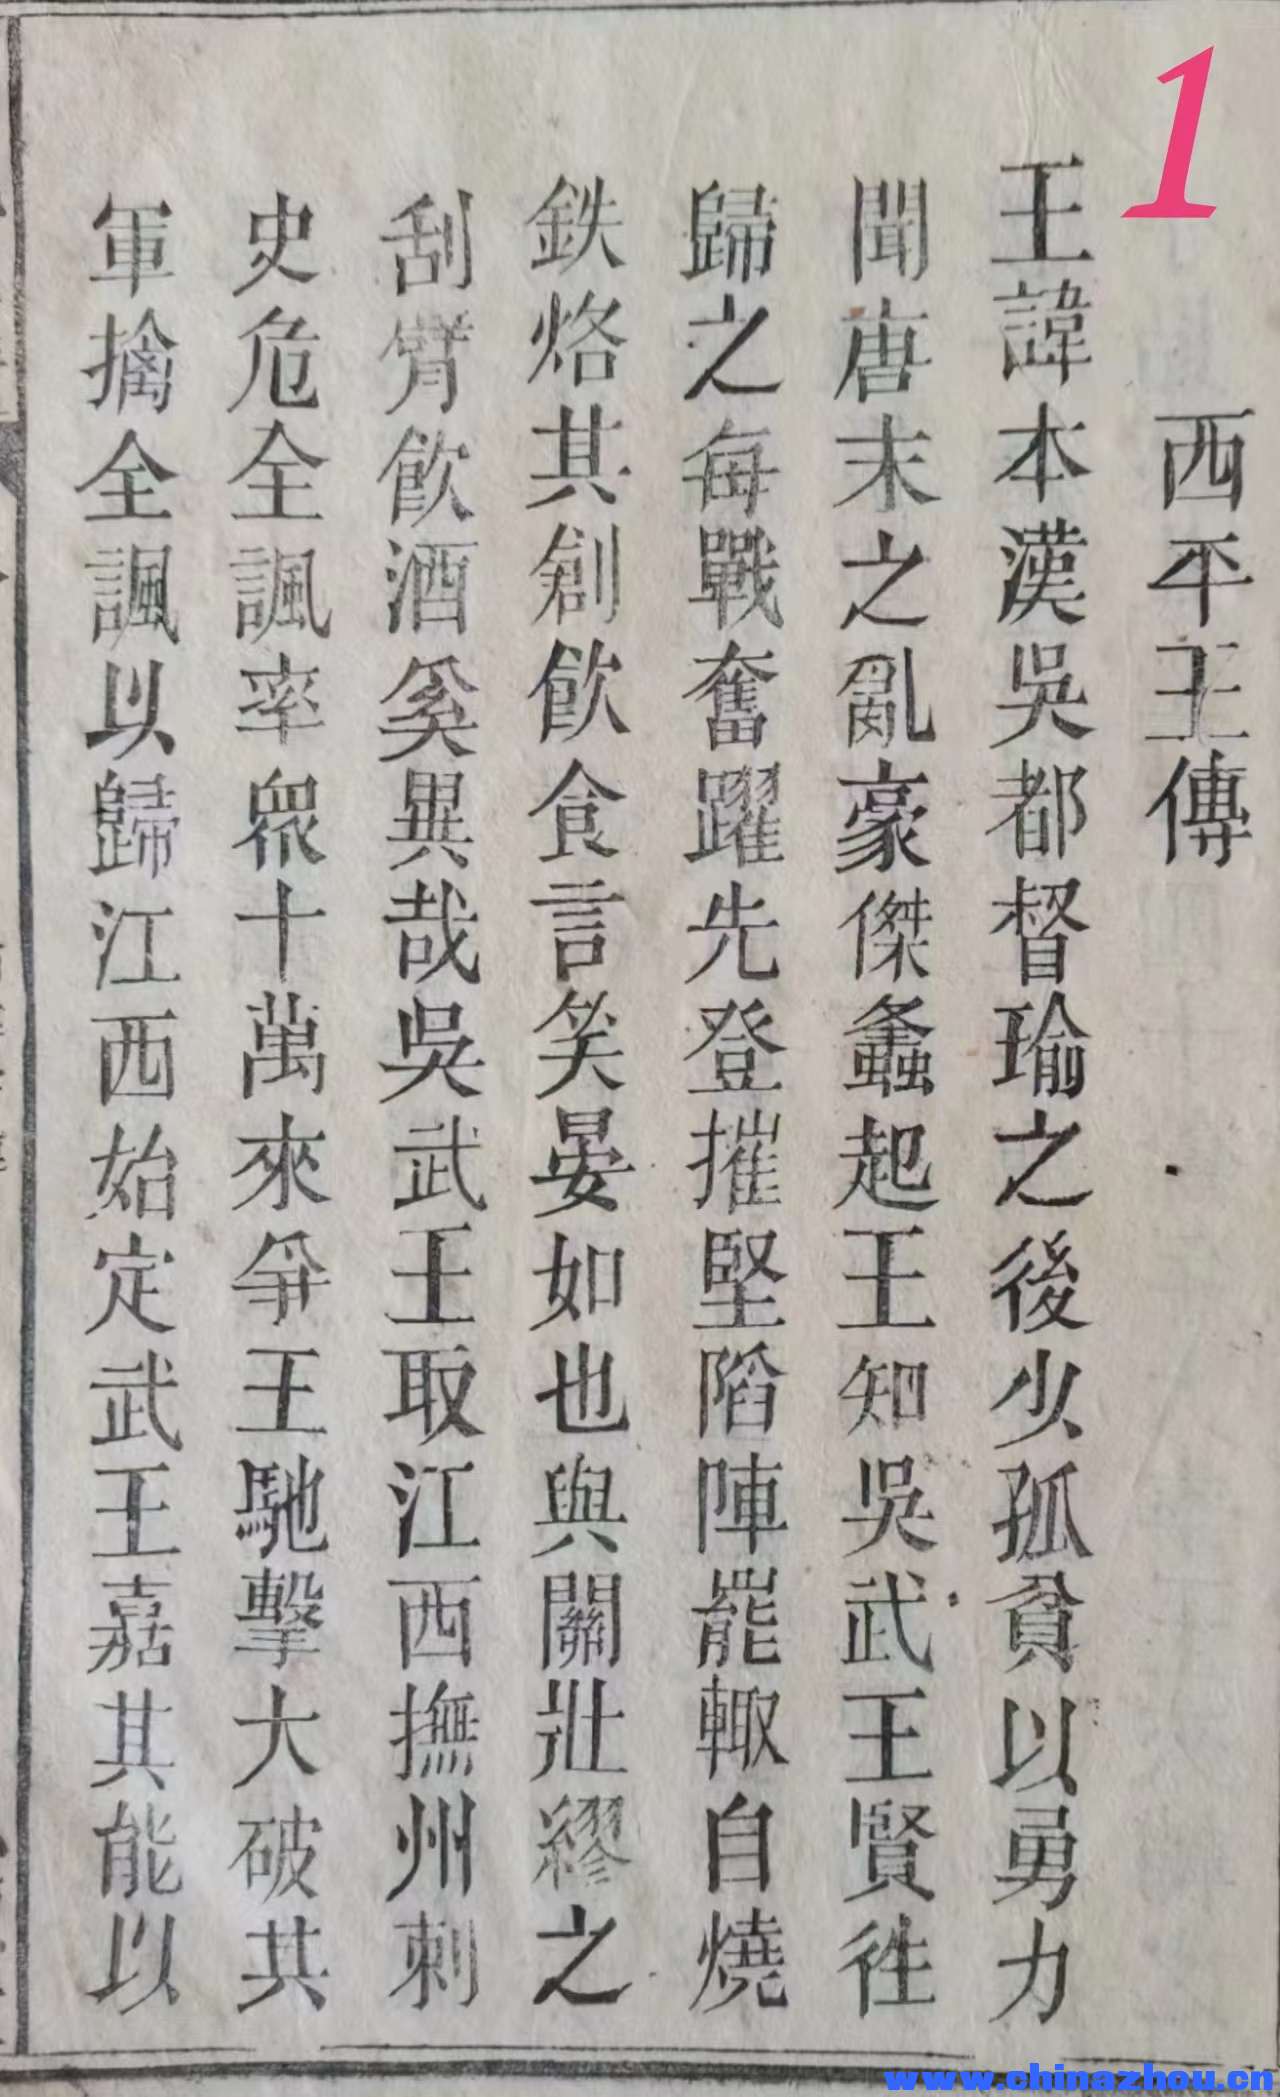 1
西平王傳
王諱本漢吳都督瑜之後少孤貧以勇力
聞唐末之亂豪傑螽起王知吳武王賢徃
歸之每戰奮躍先登摧堅陷陣罷輙自燒
鉄烙其創飲食言笑晏如也與關壯繆之
刮臂飲酒奚異哉吳武王取江西撫州刺
史危全諷率衆十萬來爭王馳擊大破其
軍擒全諷以歸江西始定武王嘉其能以
www.chinazhou.cn